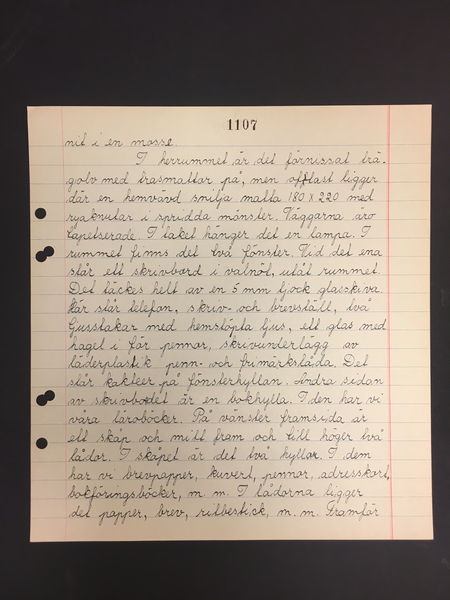 1107
nit i en mosse.
I herrummet är det fernissat trä-
golv med trasmattor på, men oftast ligger
där en hemvävd smilja matta 180 x 220 med
ryaknutar i spridda mönster. Väggarna äro
tapetserade. I taket hänger det en lampa. I
rummet finns det två fönster. Vid det ena
står ett skrivbord i valnöt, utåt rummet.
Det täckes helt av en 5 mm tjock glasskiva.
Här står telefon, skriv- och brevställ, två
ljusstakar med hemstöpta ljus, ett glas med
hagel i för pennor, skrivunderlägg av
läderplastik penn- och frimärkslåda. Det
står kakteer på fönsterhyllan. Andra sidan
av skrivbodet är en bokhylla. I den har vi
våra läroböcker. På vänster framsida är
ett skåp och mitt fram och till höger två
lådor. I skåpet är det två hyllor. I dem
har vi brevpapper, kuvert, pennor, adresskort,
bokföringsböcker, m. m. I lådorna ligger
det papper, brev, ritbestick, m. m. Framför